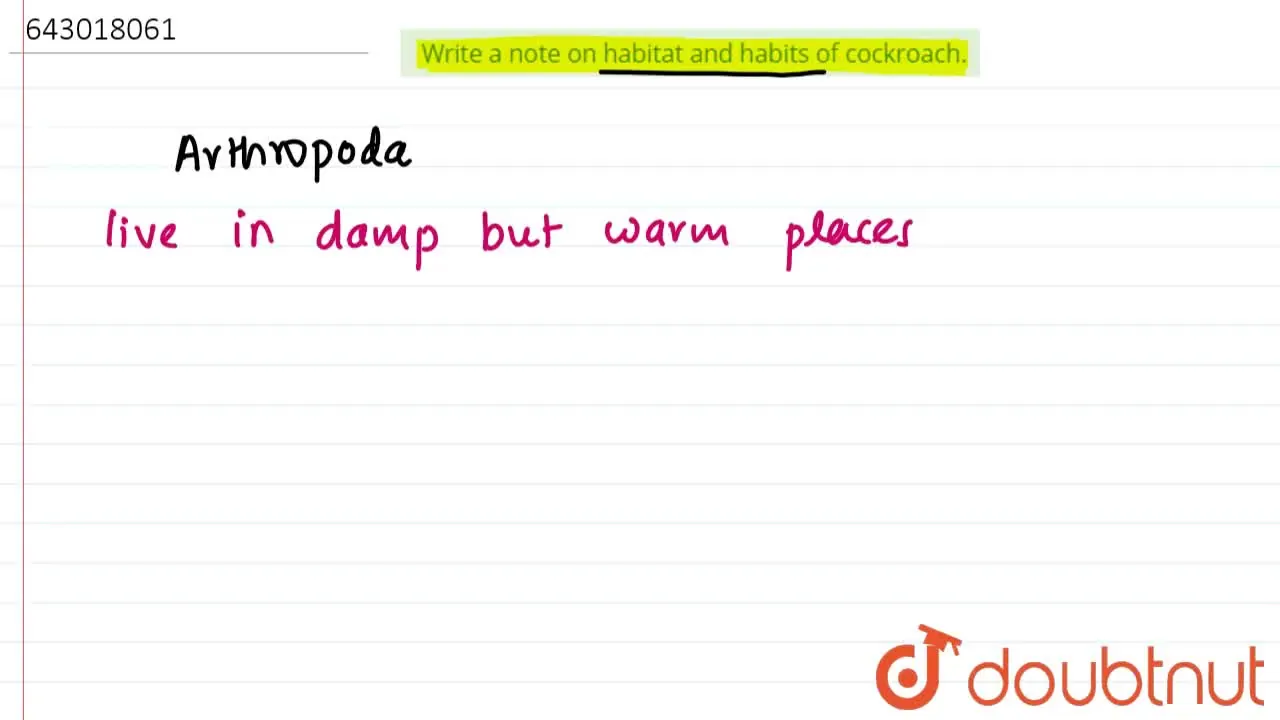 643018061
Write a note on habitat and habits of cockroach.
Arthropoda
live in damp but warm places
doubtnut